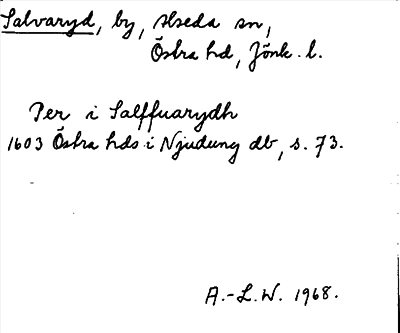 Salvaryd, by, Alseda sn,
Östra hd, Jönk. l.
Per i Salffuarydh
1603 Östra hds i Njudung db, s. 73.
A.-L.W. 1968.